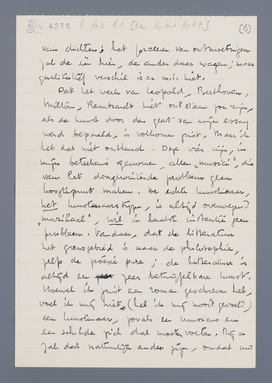 van dichten; het
zal de één hier, de ander daar wagen; maar
verschil is er m.i. niet.
Dat het werk van Leopold, Beethoven,
Milton, Rembrandt niet ontstaan zou zijn,
als de kunst door den geest van mijn essay
werd bepaald, is volkomen juist. Maar ik
heb dat niet ontkend. Deze vier zijn, in
mijn beteekenis genomen, allen "musici", die
van het probleem geen
hoofdpunt maken. De echte kunstenaar,
het kunstenaarstype, is altijd overwegend
"muzikaal", wil in laatste instantie geen
probleem. Vandaar, dat de litteratuur
het grensgebied is naar de philosophie,
zelfs de poésie pure; de litteratuur is
altijd een zeer betwijfelbare kunst.
Hoewel ik juist een roman geschreven heb,
voel ik mij niet (heb ik mij nooit gevoeld)
een kunstenaar, zooals een musicus en
een schilder zich dat moeten voelen. Bij
zal dat natuurlijk anders zijn, omdat uw